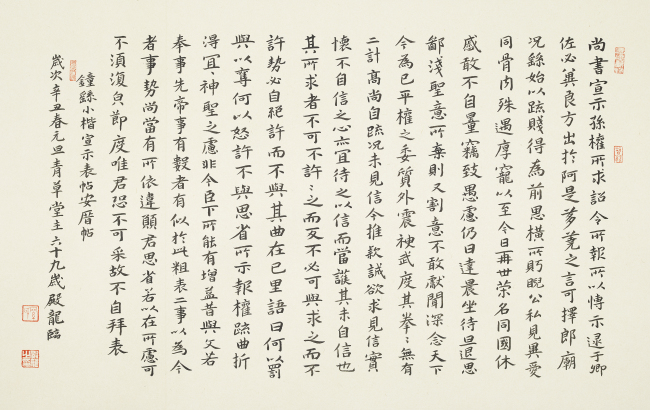 尚書宣示孫權所求詔令所報所以博示逮于卿
佐必冀良方出於阿是芻蕘之言可擇郎廟
况繇始以疏賤得為前恩橫所眄睨公私見異愛
同骨肉殊遇厚寵以至今日再世榮名同國休
慼敢不自量竊致愚慮仍日達晨坐待旦退思
鄙淺聖意所棄則又割意不敢獻聞深念天下
今為已平權之委質外震神武度其拳〻無有
二計高尚自疏况未見信今推款誠欲求見信實
懷不自信之心亦宜待之以信而當護其未自信也
其所求者不可不許〻之而反不必可與求之而不
許勢必自絕許而不與其曲在己里語曰何以罰
與以奪何以怒許不與思省所示報權疏曲折
得冝〻神聖之慮非今臣下所能有增益昔與文若
奉事先帝事有數者有似於此粗表二事以為今
者事勢尚當有所依違願君思省若以在所慮可
不須復皃節度唯君恐不可采故不自拜表
鍾繇小楷宣示表帖安厝帖
歲次辛丑春元旦青草堂主六十九歲殿龍臨